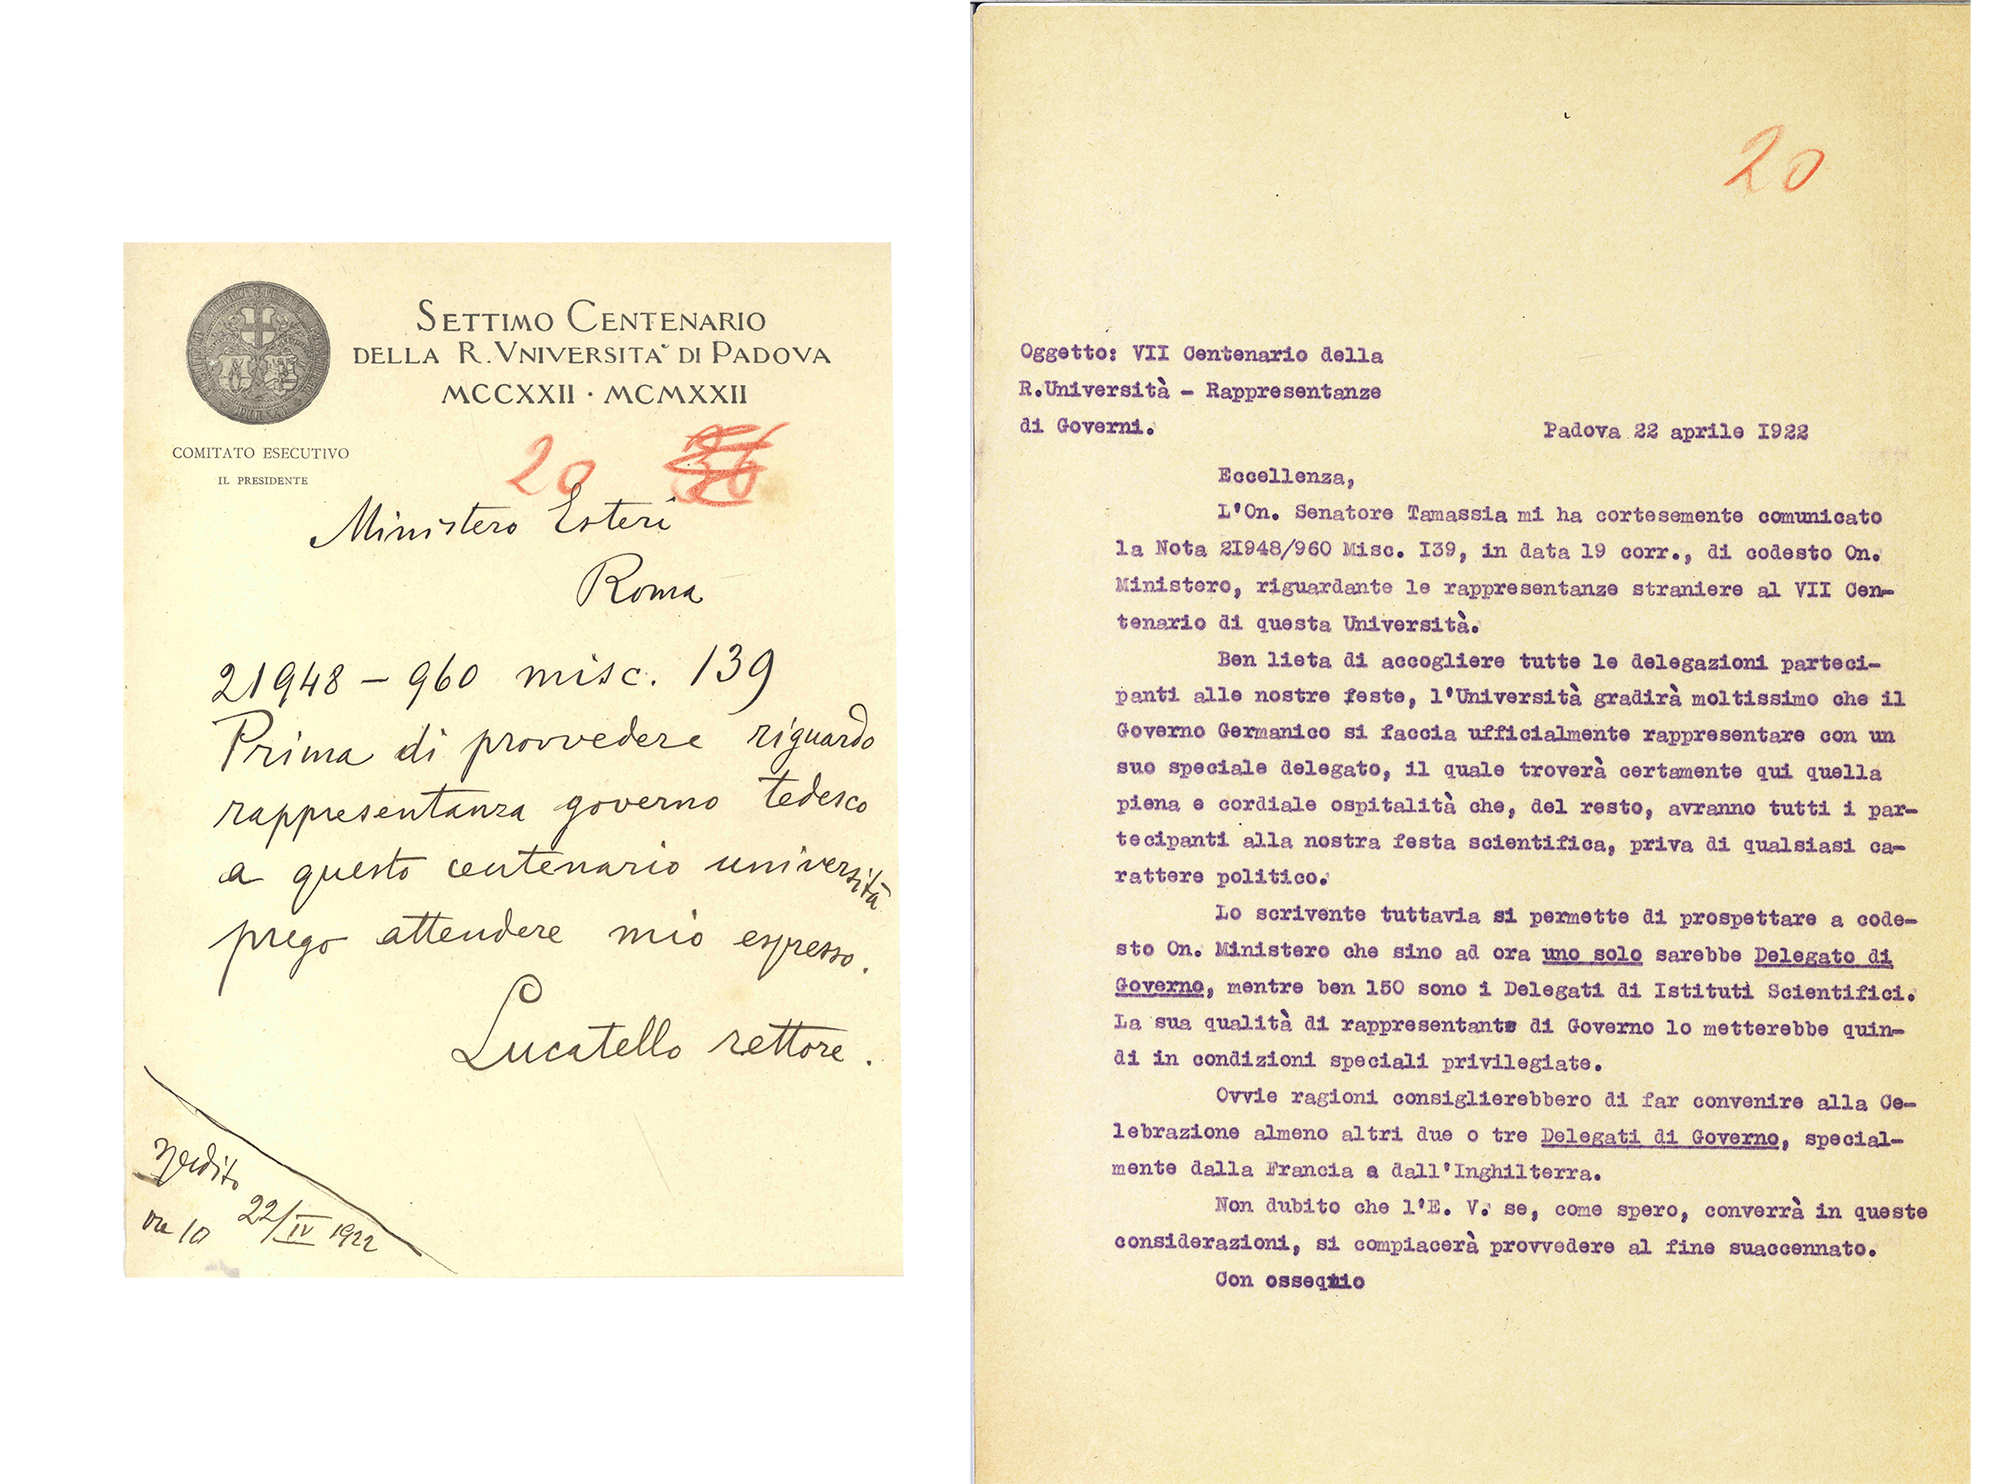 SETTIMO CENTENARIO
DELLA R. VNIVERSITA' DI PADOVA
MCCXXII · MCMXXII
COMITATO ESECUTIVO
IL PRESIDENTE
20
Ministero Esteri
Roma
21948 - 960 misc. 139
Prima di provvedere riguardo
rappresentanza governo tedesco
a questo centenario università
prego attendere mio espresso.
Lucatello rettore.
spedito
ore 10 22/IV 1922
20
Oggetto: VII Centenario della
R.Università - Rappresentanze
di Governi.
Padova 22 aprile I922
Eccellenza,
L'On. Senatore Tamassia mi ha cortesemente comunicato
la Nota 2I948/960 Misc. I39, in data 19 corr., di codesto On.
Ministero, riguardante le rappresentanze straniere al VII Cen-
tenario di questa Università.
Ben lieta di accogliere tutte le delegazioni parteci-
panti alle nostre feste, l'Università gradirà moltissimo che il
Governo Germanico si faccia ufficialmente rappresentare con un
suo speciale delegato, il quale troverà certamente qui quella
piena e cordiale ospitalità che, del resto, avranno tutti i par-
tecipanti alla nostra festa scientifica, priva di qualsiasi ca-
rattere politico.
Lo scrivente tuttavia si permette di prospettare a code-
sto On. Ministero che sino ad ora uno solo sarebbe Delegato di
Governo, mentre ben 150 sono i Delegati di Istituti Scientifici.
La sua qualità di rappresentante di Governo lo metterebbe quin-
di in condizioni speciali privilegiate.
Ovvie ragioni consiglierebbero di far convenire alla Ce-
lebrazione almeno altri due o tre Delegati di Governo, special-
mente dalla Francia e dall'Inghilterra.
Non dubito che l'E. V. se, come spero, converrà in queste
considerazioni, si compiacerà provvedere al fine suaccennato.
Con ossequio